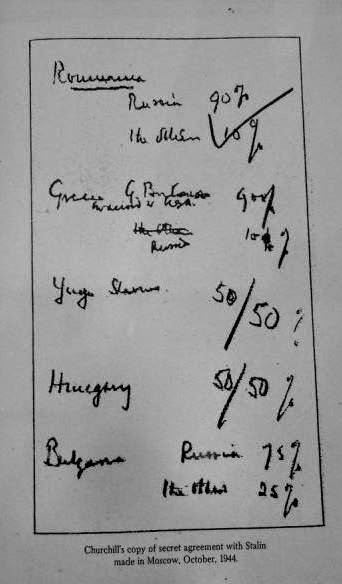 Roumania
Russia 90%
The others 10%
Greece G. Britain 90%
in accord with U.S.A.
The others
Russia 10%
Yugo Slavia 50/50 %
Hungary 50/50 %
Bulgaria Russia 75%
The others 25%
Churchill's copy of secret agreement with Stalin
made in Moscow, October, 1944.